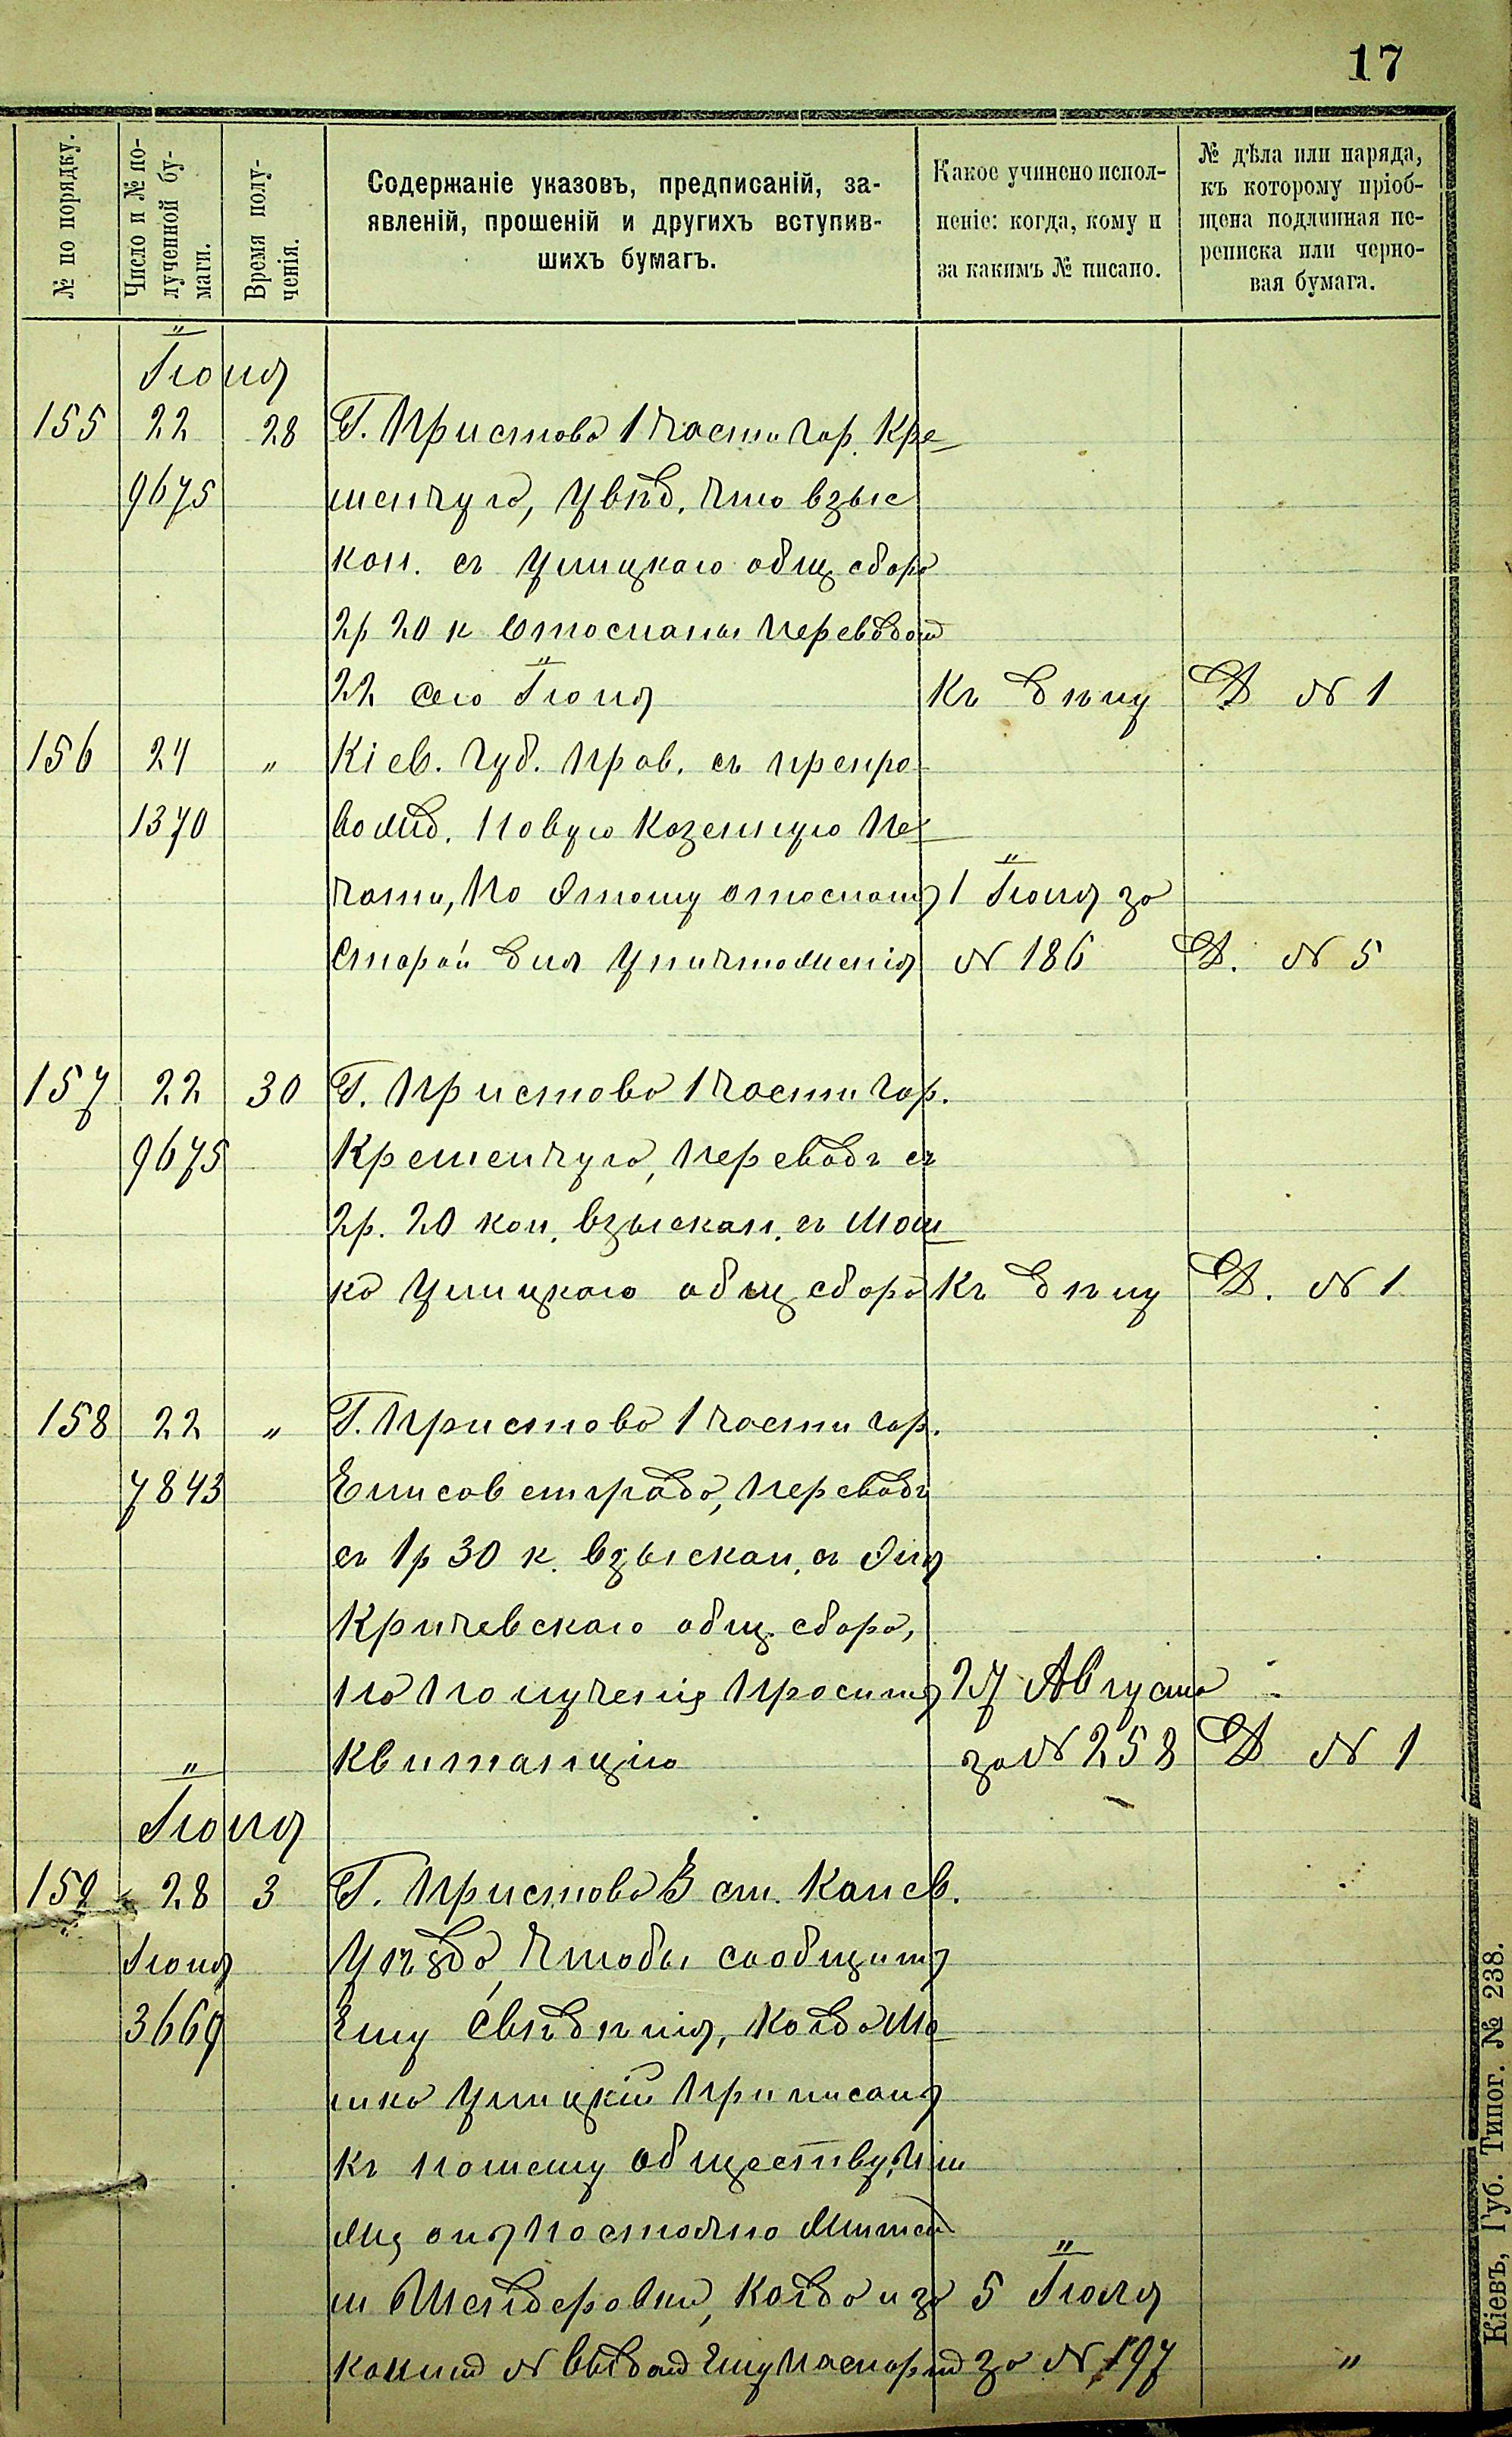 17
№ по порядку.
Число и № по-
лученной бу-
маги.
Время полу-
ченія.
Содержаніе указовъ, предписаній, за-
явленій, прошеній и другихъ вступив-
шихъ бумагъ.
Какое учинено испол-
неніе: когда, кому и
за какимъ № писано.
№ дѣла или наряда,
къ которому пріоб-
щена подлинная пе-
реписка или черно-
вая бумага.
Іюня
155 22 28 Г. Пристава 1 части гор. Кре-
9675 менчуга, увѣд. что взыс
кан. съ Улицкаго общ сбора
2р 20 к отосланы переводом
22 сего Іюня Къ дѣлу Д № 1
156 24 „ Кіев. Губ. Прав. съ препро-
1370 вожд. новую казенную пе-
чать, по этому отослать 1 Іюля за
старой для уничтоженія № 186 Д. № 5
157 22 30 Г. Пристава 1 части гор.
9675 Кременчуга, переводъ съ
2р. 20 коп. взыскан. съ Мош-
ка Улицкаго общ сбора Къ дѣлу Д. № 1
158 22 „ Г. Пристава 1 части гор.
7843 Елисаветграда, переводъ
съ 1р 30 к. взыскан. съ Эля
Кричевскаго общ. сбора,
по полученія проситъ 27 Августа
квитанцію за № 258 Д № 1
Іюля
159 28 3 Г. Пристава 3 ст. Канев.
Іюня Уѣзда, чтобы сообщить
3669 Ему свѣдѣнія, когда Мо-
шко Улицкій приписанъ
къ нашему обществу, или
онъ постоянно жител
м Шендеровки, когда и за 5 Іюля
каким № выдан ему паспорт за № 197 „
Кіевъ, Губ. Типог. № 238.